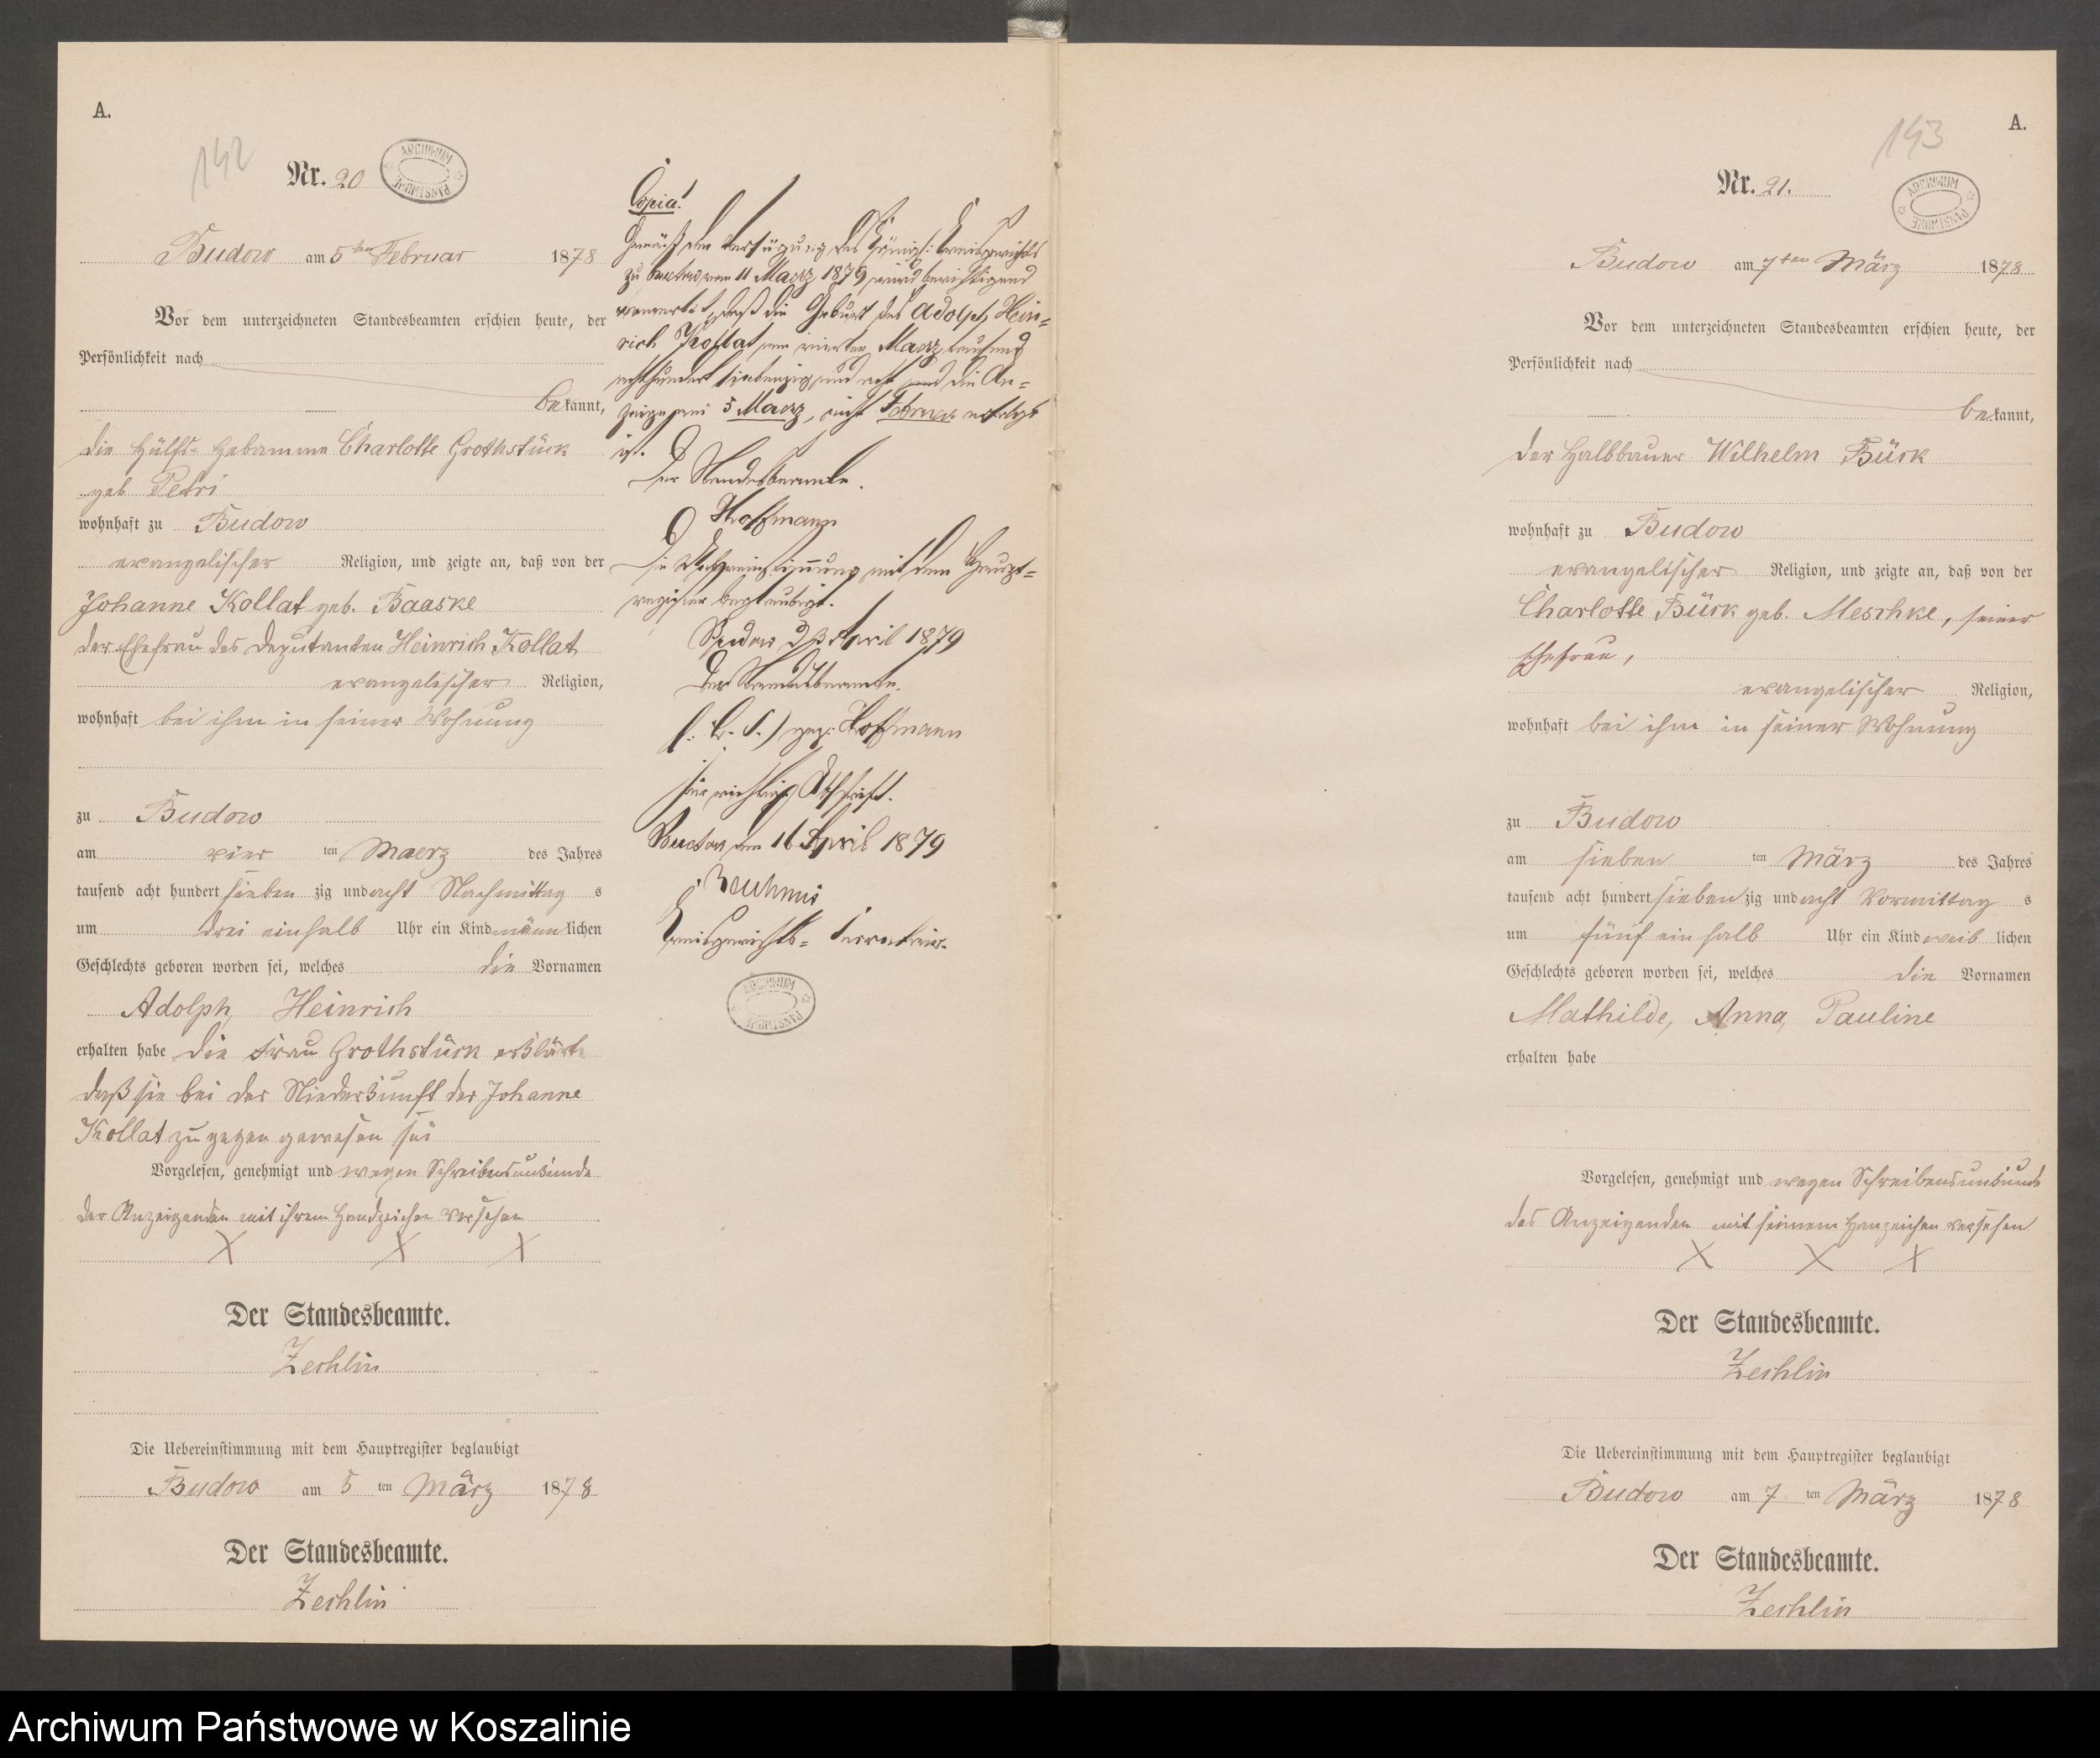 A.
142
Nr. 20
ARCHIWUM PAŃSTWOWE
Budow am 5ten Februar 1878
Vor dem unterzeichneten Standesbeamten erschien heute, der
Persönlichkeit nach
bekannt,
die Hülfs-Hebamme Charlotte Grothstück
geb Petri
wohnhaft zu Budow
evangelischer Religion, und zeigte an, daß von der
Johanne Kollat geb. Baaske
der Ehefrau des Deputanten Heinrich Kollat
evangelischer Religion,
wohnhaft bei ihm in seiner Wohnung
zu Budow
am vier ten Maerz des Jahres
tausend acht hundert sieben zig und acht Nachmittag s
um drei einhalb Uhr ein Kind männlichen
Geschlechts geboren worden sei, welches die Vornamen
Adolph, Heinrich
erhalten habe die Frau Grothstück erklärte
daß sie bei der Niederkunft der Johanne
Kollat zugegen gewesen sei
Vorgelesen, genehmigt und wegen Schreibensunkunde
der Anzeigenden mit ihrem Handzeichen versehen
X X X
Der Standesbeamte.
Zechlin
Die Uebereinstimmung mit dem Hauptregister beglaubigt
Budow am 5 ten März 1878
Der Standesbeamte.
Zechlin
Copia!
Gemäß der Verfügung des Königl: Kreisgerichts
zu vom 11 Maerz 1879 wird berichtigend
vermerkt, daß die Geburt des Adolph Hein=
rich Kollat am vierten Maerz tausend
achthundert siebenzig und acht und die An=
zeige am 5 Maerz, nicht Februar erfolgt
ist.
Der Standesbeamte.
Hoffmann
Die Uebereinstimmung mit dem Haupt=
register beglaubigt.
Budow April 1879
Der Standesbeamte.
(: L. S.) gez: Hoffmann
Für richtige Abschrift.
den 16 April 1879
Kreisgerichts= Secretair.
ARCHIWUM PAŃSTWOWE
A.
143
Nr. 21.
ARCHIWUM PAŃSTWOWE
Budow am 7ten März 1878
Vor dem unterzeichneten Standesbeamten erschien heute, der
Persönlichkeit nach
bekannt,
der Halbbauer Wilhelm Bürk
wohnhaft zu Budow
evangelischer Religion, und zeigte an, daß von der
Charlotte Bürk geb. Meschke, seiner
Ehefrau,
evangelischer Religion,
wohnhaft bei ihm in seiner Wohnung
zu Budow
am sieben ten März des Jahres
tausend acht hundert sieben zig und acht Vormittag s
um fünf ein halb Uhr ein Kind weib lichen
Geschlechts geboren worden sei, welches die Vornamen
Mathilde, Anna, Pauline
erhalten habe
Vorgelesen, genehmigt und wegen Schreibensunkunde
des Anzeigenden mit seinem Hanzeichen versehen
X X X
Der Standesbeamte.
Zechlin
Die Uebereinstimmung mit dem Hauptregister beglaubigt
Budow am 7 ten März 1878
Der Standesbeamte.
Zechlin
Archiwum Państwowe w Koszalinie